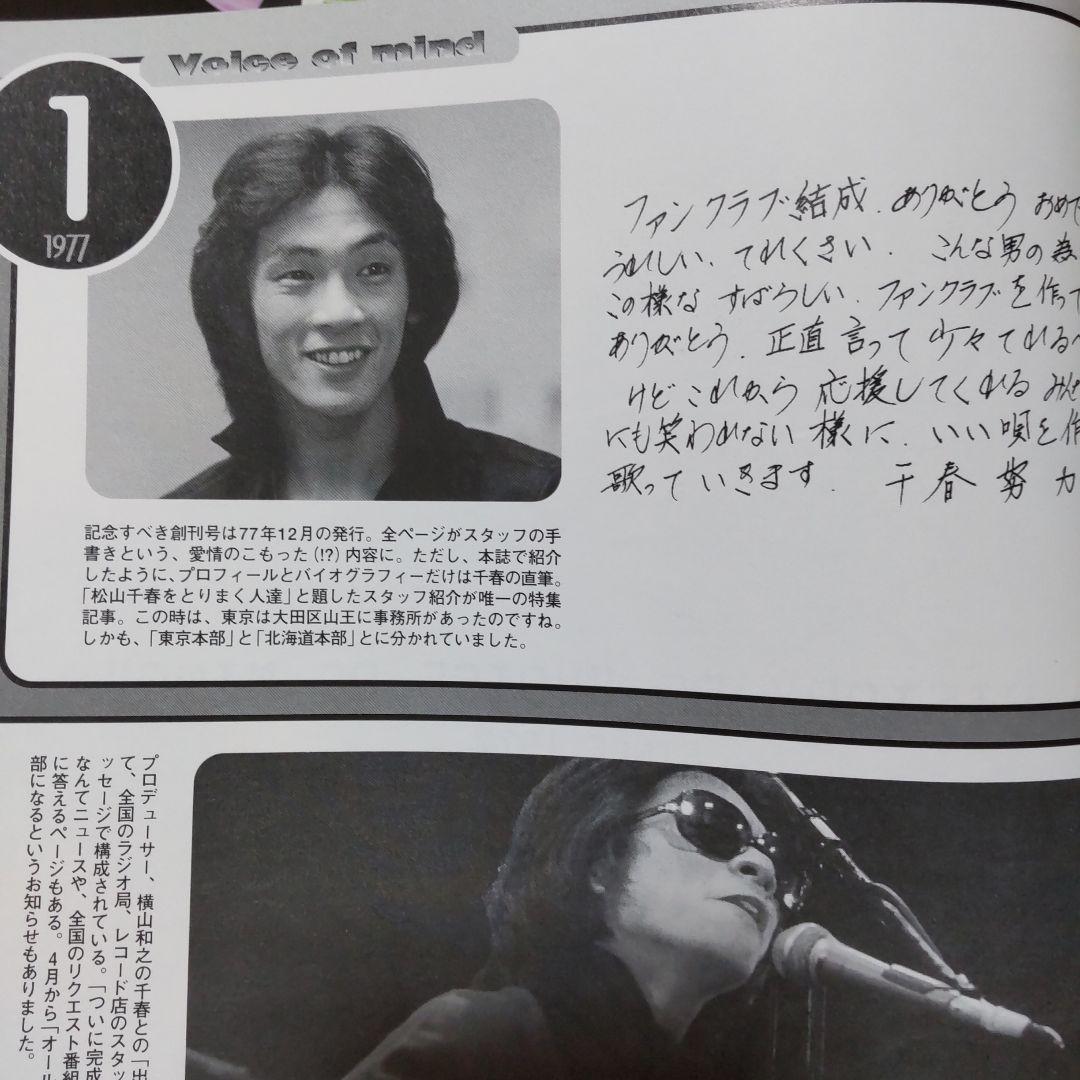 Voice of mind
1
1977
ファンクラブ結成. ありがとう おめで
うれしい. てれくさい. こんな男の為
この様な すばらしい. ファンクラブを作って
ありがとう. 正直言って 少々てれるべ
けど これから 応援してくれる みんな
にも笑われない 様に. いい唄を作
歌って いきます. 千春 努力
記念すべき創刊号は77年12月の発行。全ページがスタッフの手
書きという、愛情のこもった(!?)内容に。ただし、本誌で紹介
したように、プロフィールとバイオグラフィーだけは千春の直筆。
「松山千春をとりまく人達」と題したスタッフ紹介が唯一の特集
記事。この時は、東京は大田区山王に事務所があったのですね。
しかも、「東京本部」と「北海道本部」とに分かれていました。
プロデューサー、横山和之の千春との「出
て、全国のラジオ局、レコード店のスタッ
ッセージで構成されている。「ついに完成
なんてニュースや、全国のリクエスト番組
に答えるページもある。4月から「オール
部になるというお知らせもありました。